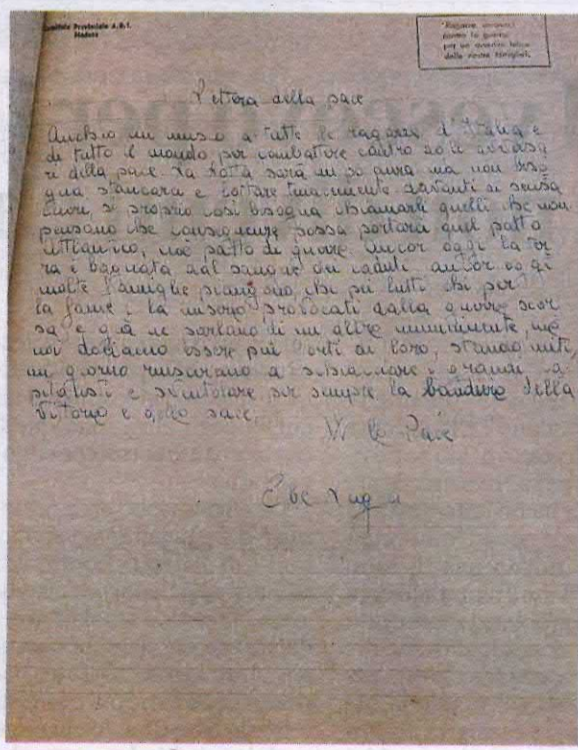 Comitato Provinciale A.R.I.
Modena
"Ragazze
contro la guerra
per un avvenire felice
delle nostre famiglie".
Lettera della pace
Anch'io mi unisco a tutte le ragazze d'Italia e
di tutto il mondo per combattere contro
ri della pace. La lotta sarà un po dura ma non biso
gna stancarsi e lottare tenacemente davanti ai senza
cuori, si proprio cosi bisogna chiamarli quelli che non
pensano che conseguenze possa portarci quel patto
Atlantico, cioè patto di guerra. Ancor oggi la ter
ra è bagnata dal sangue dei caduti ancor oggi
molte famiglie piangono, chi per lutti chi per
la fame e la miseria provocati dalla guerra scor
sa e già ne parlano di un altra imminente, ma
noi dobbiamo essere più forti di loro, stando uniti,
un giorno riusciremo a schiacciare i grandi ca
pitalisti e sventolare per sempre la bandiera della
Vittoria e della pace.
W la Pace
Ebe